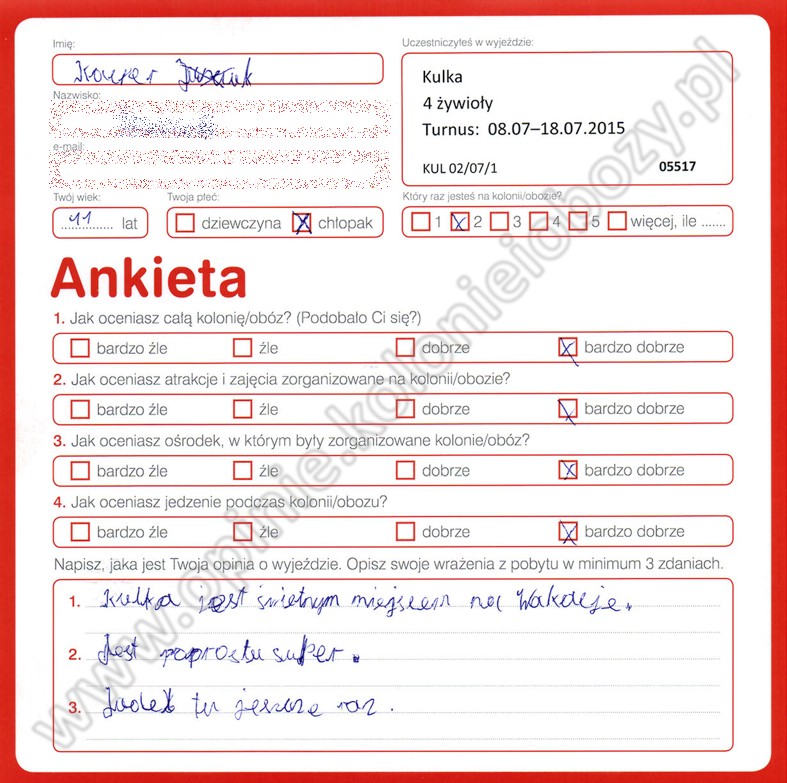 Imię:
Kacper
Nazwisko:
e-mail:
Twój wiek:
11 lat
Twoja płeć:
dziewczyna chłopak
Uczestniczyłeś w wyjeździe:
Kulka
4 żywioły
Turnus: 08.07–18.07.2015
KUL 02/07/1 05517
Który raz jesteś na kolonii/obozie?
1 2 3 4 5 więcej, ile .......
Ankieta
1. Jak oceniasz całą kolonię/obóz? (Podobało Ci się?)
bardzo źle źle dobrze bardzo dobrze
2. Jak oceniasz atrakcje i zajęcia zorganizowane na kolonii/obozie?
bardzo źle źle dobrze bardzo dobrze
3. Jak oceniasz ośrodek, w którym były zorganizowane kolonie/obóz?
bardzo źle źle dobrze bardzo dobrze
4. Jak oceniasz jedzenie podczas kolonii/obozu?
bardzo źle źle dobrze bardzo dobrze
Napisz, jaka jest Twoja opinia o wyjeździe. Opisz swoje wrażenia z pobytu w minimum 3 zdaniach.
1. Kulka jest świetnym miejscem na wakacje.
2. Jest poprostu super.
3. tu jeszcze raz.
www.opinie.kolonieiobozy.pl